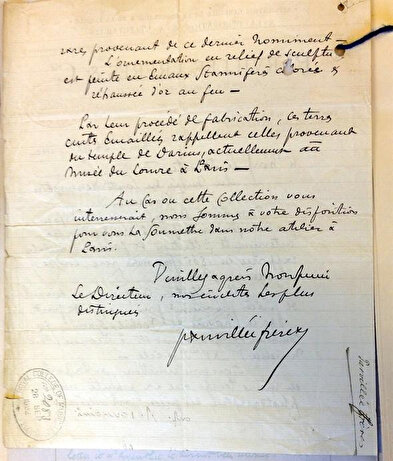 rares provenant de ce dernier Monument —
L'ornementation en relief de sculptu
est peinte en Emaux Stannifères &
réhaussée d'or au feu —
Par leur procédé de fabrication, ces terres
cuites Emaillées rappellent celles provenant
du temple de Darius, actuellement au
Musée du Louvre à Paris —
Au Cas ou cette Collection vous
interesserait, nous sommes à votre disposition
pour vous la soumettre dans nôtre atelier à
Paris.
Veuillez agréer Monsieur
Le Directeur, nos sincères les plus
distingués
Parvillée frères
Parvillée frères